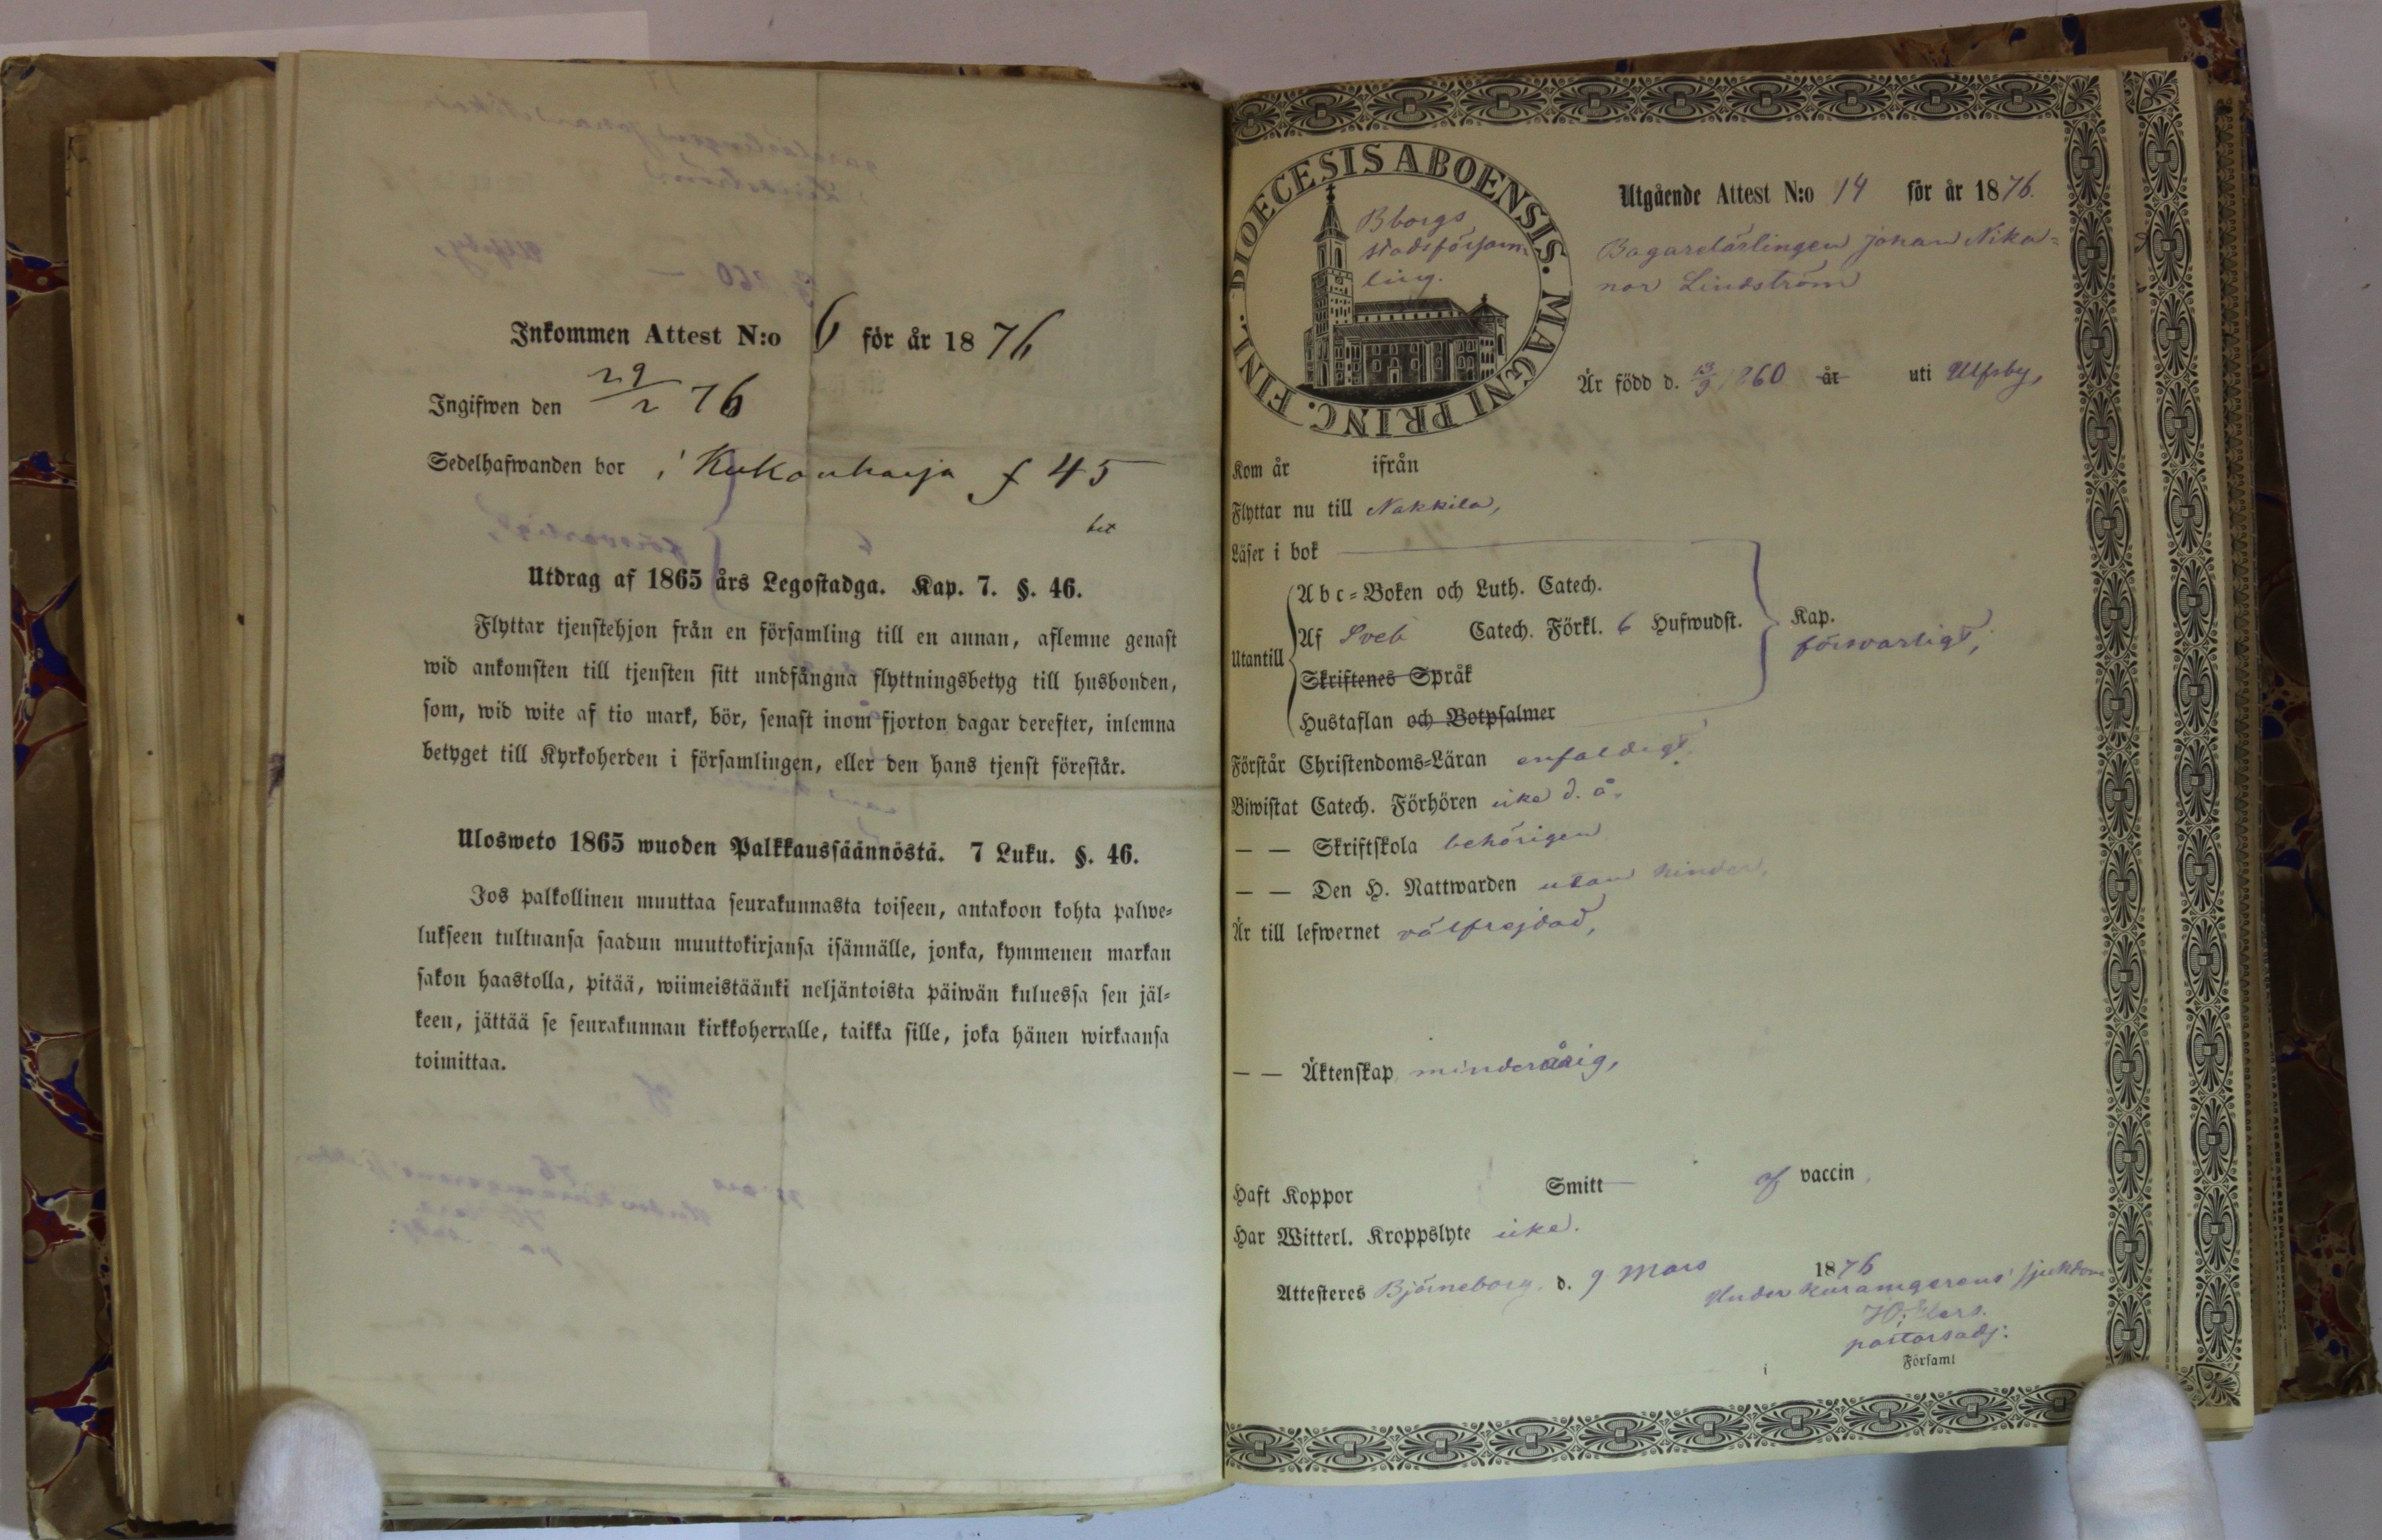 Inkommen Attest N:o 6 för år 1876
Ingifwen den 29/2 76
Sedelhafwanden bor i Kukonharja f 45
bet
Utdrag af 1865 års Legostadga. Kap. 7. §. 46.
Flyttar tjenstehjon från en församling till en annan, aflemne genast
wid ankomsten till tjensten sitt undfångna flyttningsbetyg till husbonden,
som, wid wite af tio mark, bör, senast inom fjorton dagar derefter, inlemna
betyget till Kyrkoherden i församlingen, eller den hans tjenst förestår.
Ulosweto 1865 wuoden Palkkaussäännöstä. 7 Luku. §. 46.
Jos palkollinen muuttaa seurakunnasta toiseen, antakoon kohta palwe=
lukseen tultuansa saadun muuttokirjansa isännälle, jonka, kymmenen markan
sakon haastolla, pitää, wiimeistäänki neljäntoista päiwän kuluessa sen jäl=
keen, jättää se seurakunnan kirkkoherralle, taikka sille, joka hänen wirkaansa
toimittaa.
DIOECESIS ABOENSIS. MAGNI PRINC. FINL.
Bborgs
stadsförsam=
ling.
Utgående Attest N:o 14 för år 1876.
Bagarelärlingen Johan Nika=
nor Lindström
Är född d. 13/9 1860 år uti Ulfsby,
Kom år ifrån
Flyttar nu till Nakkila,
Läser i bok
Utantill
A b c=Boken och Luth. Catech.
Af Sveb Catech. Förkl. 6 Hufwudst.
Skriftenes Språk
Hustaflan och Botpsalmer
Kap.
försvarligt,
Förstår Christendoms=Läran enfaldigt.
Biwistat Catech. Förhören icke d. å.
— — Skriftskola behörigen
— — Den H. Nattwarden utan hinder,
Är till lefwernet välfrejdad,
— — Äktenskap minderårig,
Haft Koppor Smitt af vaccin
Har Witterl. Kroppslyte icke.
Attesteres Björneborg, d. 9 Mars 1876
Under sjukdom
pastorsadj:
i Församl